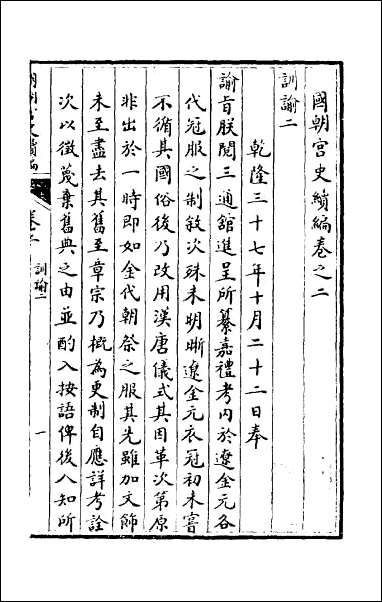 國朝宮史續編卷之二
訓諭二
乾隆三十七年十月二十二日奉
諭旨朕閱三通舘進呈所纂嘉禮考内於遼金元各
代冠服之制敘次殊未明晰遼金元衣冠初未嘗
不循其國俗後乃改用漢唐儀式其因革次第原
非出於一時即如金代朝祭之服其先雖加文飾
未至盡去其舊至章宗乃概為更制自應詳考詮
次以徵蔑棄舊典之由並酌入按語俾後人知所
卷二
訓諭二
一